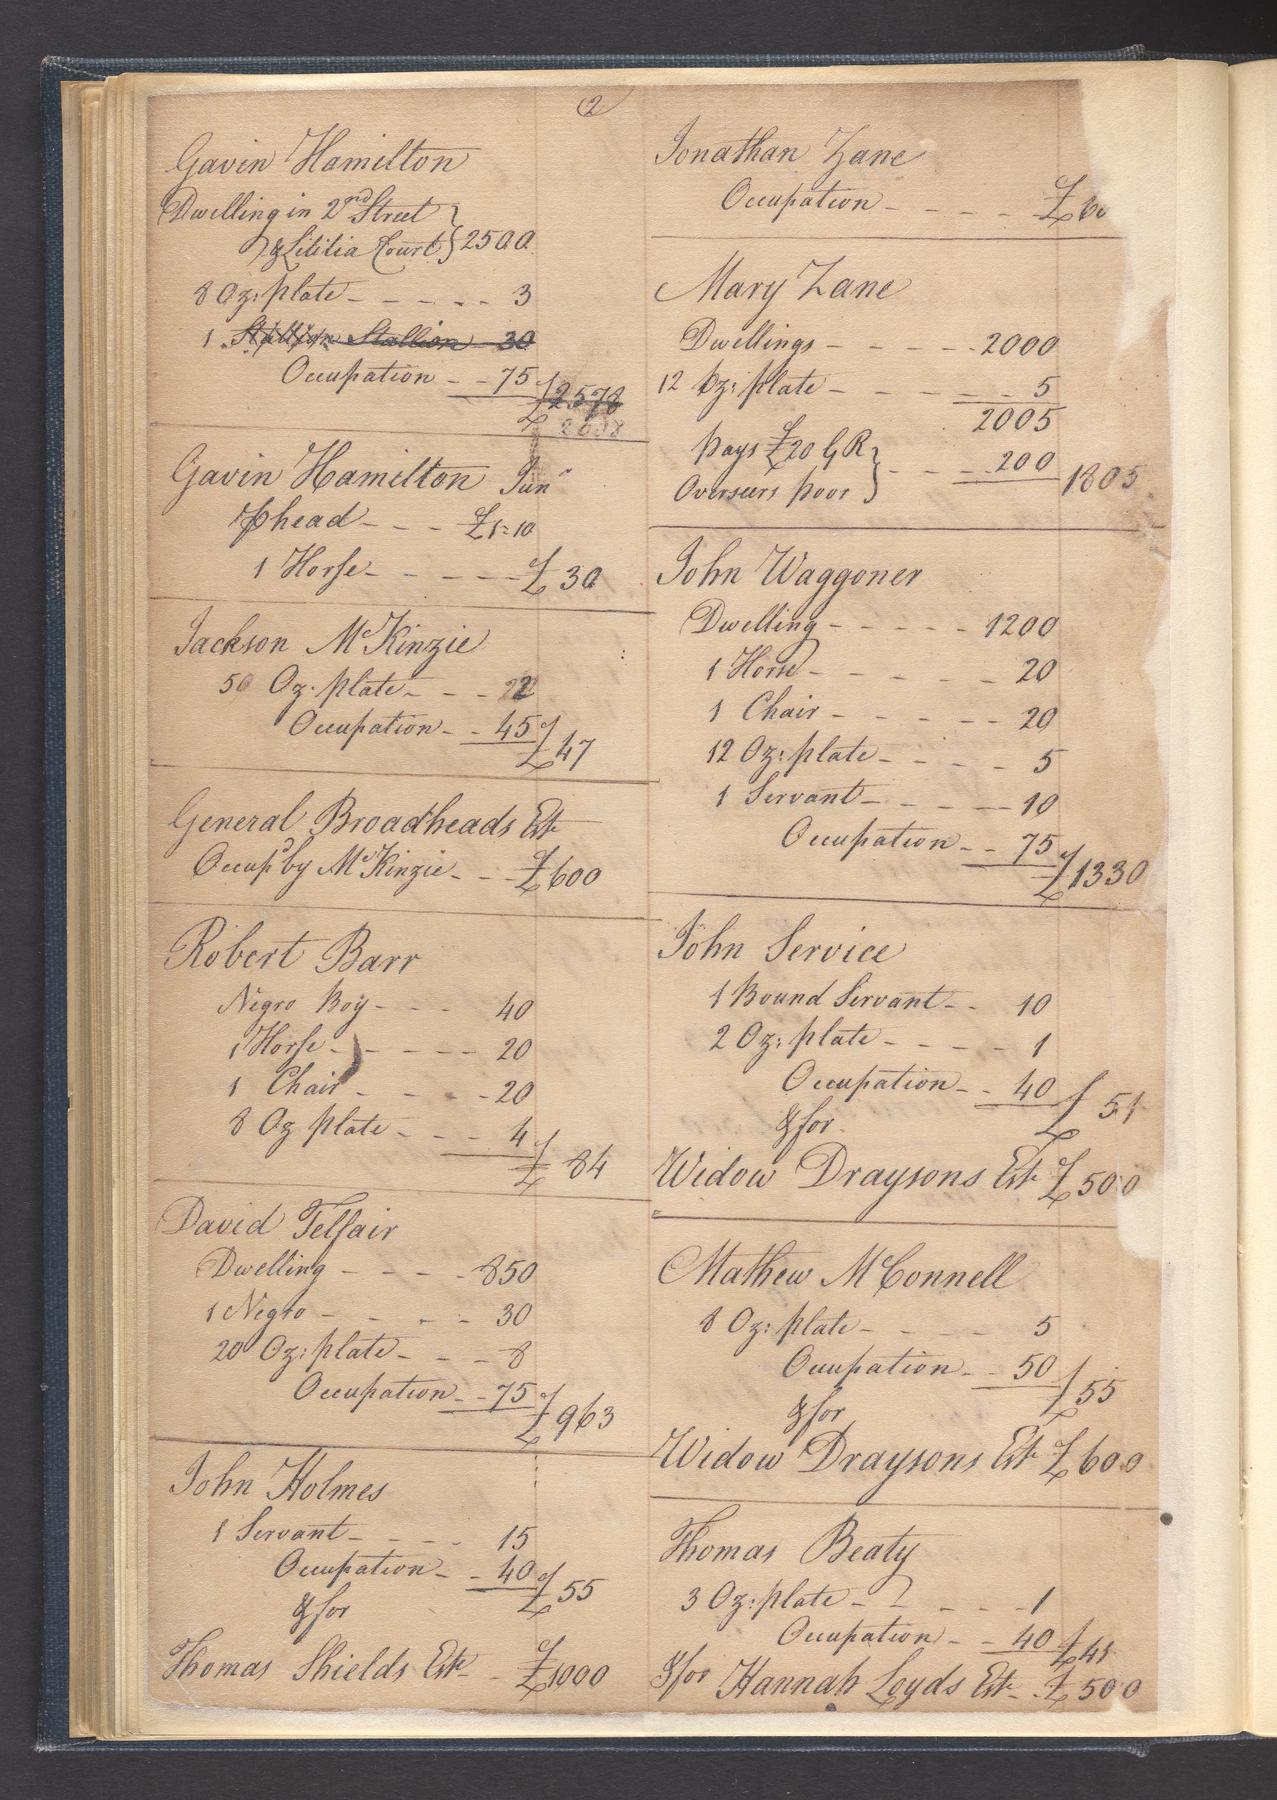 2
Gavin Hamilton
Dwelling in 2nd Street
& Lititia Court } 2500
8 Oz: plate - - - - - 3
1 Stallion Stallion 30
Occupation - - 75
£ 2578
2608
Gavin Hamilton Junr
℔ head - - - £1-10
1 Horse - - - - - £ 30
Jackson McKinzie
50 Oz. plate - - - 22
Occupation - - 45
£ 47
General Broadheads Est
Occupd by McKinzie - - - £600
Robert Barr
Negro Boy - - - 40
1 Horse - - - - - 20
1 Chair - - - - 20
8 Oz plate - - - 4
£ 84
David Telfair
Dwelling - - - - 850
1 Negro - - - - 30
20 Oz: plate - - - 8
Occupation - - 75
£ 963
John Holmes
1 Servant - - - - 15
Occupation - - 40
£ 55
& for
Thomas Shields Est - £1000
Jonathan Zane
Occupation - - - - £60
Mary Zane
Dwellings - - - - - 2000
12 Oz: plate - - - - - 5
2005
pays £20 G R
Overseers poor } - - - 200
1805
John Waggoner
Dwelling - - - - - 1200
1 Horse - - - - - 20
1 Chair - - - - - 20
12 Oz: plate - - - - 5
1 Servant - - - - - 10
Occupation - - 75
£ 1330
John Service
1 Bound Servant - - 10
2 Oz: plate - - - - 1
Occupation - - 40
£ 51
& for
Widow Draysons Est £500
Mathew McConnell
8 Oz: plate - - - - 5
Occupation - - 50
£ 55
& for
Widow Draysons Est £600
Thomas Beaty
3 Oz: plate - - - - - 1
Occupation - - 40
£41
& for Hannah Loyds Est - £500